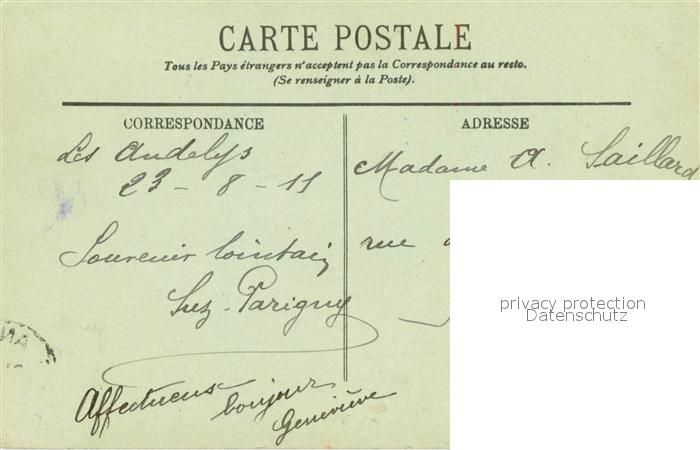 CARTE POSTALE
Tous les Pays étrangers n'acceptent pas la Correspondance au recto.
(Se renseigner à la Poste).
CORRESPONDANCE
Les Andelys
23 - 8 - 11
Souvenir lointain
Parigny
Affectueux
bonjour
Geneviève
ADRESSE
Madame A. Saillard
rue
privacy protection
Datenschutz